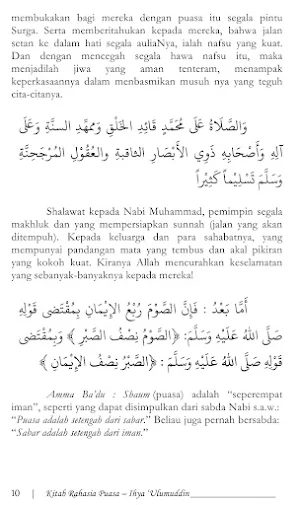 membukakan bagi mereka dengan puasa itu segala pintu
Surga. Serta memberitahukan kepada mereka, bahwa jalan
setan ke dalam hati segala auliaNya, ialah nafsu yang kuat.
Dan dengan mencegah segala hawa nafsu itu, maka
menjadilah jiwa yang aman tenteram, menampak
keperkasaannya dalam membasmikan musuh nya yang teguh
cita-citanya.
وَالصَّلَاةُ عَلَى مُحَمَّدٍ قَائِدِ الخَلْقِ وَمُمَهِّدِ السنَّةِ وَعَلَى
آلِهِ وَأَصْحَابِهِ ذَوِي الأَبْصَارِ الثاقبةِ والعُقُولِ المُرجَحِنَّةِ
وَسَلَّمَ تَسْلِيْماً كَثِيْراً
Shalawat kepada Nabi Muhammad, pemimpin segala
makhluk dan yang mempersiapkan sunnah (jalan yang akan
ditempuh). Kepada keluarga dan para sahabatnya, yang
mempunyai pandangan mata yang tembus dan akal pikiran
yang kokoh kuat. Kiranya Allah mencurahkan keselamatan
yang sebanyak-banyaknya kepada mereka!
أَمَّا بَعْدُ : فَإِنَّ الصَّوْمَ رُبْعُ الإِيْمَانِ بِمُقْتَضَى قَوْلِهِ
صَلَّى اللهُ عَلَيْهِ وَسَلَّمَ: ﴿الصَّوْمُ نِصْفُ الصَّبْرِ﴾ وَبِمُقْتَضَى
قَوْلِهِ صَلَّى اللهُ عَلَيْهِ وَسَلَّمَ : ﴿الصَّبْرُ نِصْفُ الإِيْمَانِ﴾
Amma Ba'du : Shaum (puasa) adalah “seperempat
iman”, seperti yang dapat disimpulkan dari sabda Nabi s.a.w.:
“Puasa adalah setengah dari sabar.” Beliau juga pernah bersabda:
“Sabar adalah setengah dari iman.”
10 | Kitab Rahasia Puasa – Ihya ‘Ulumuddin